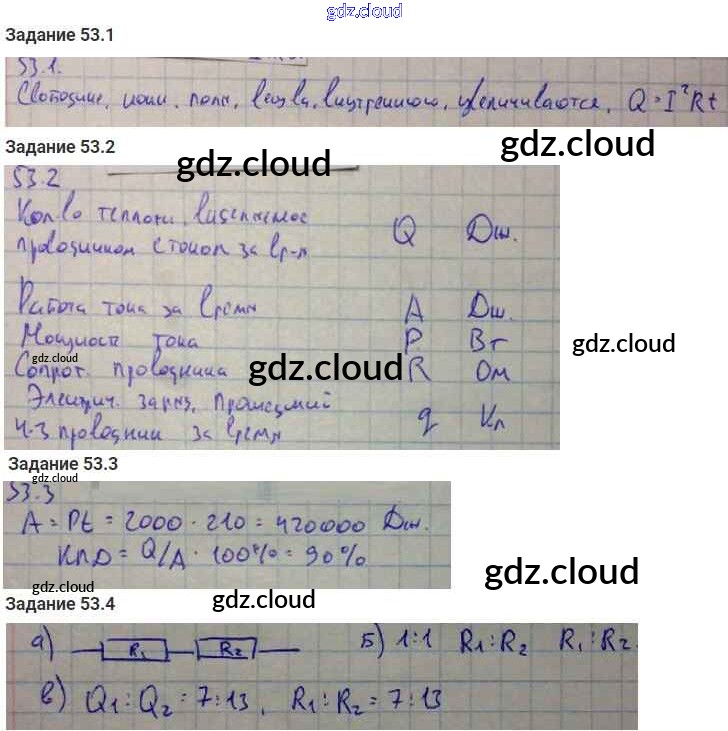 gdz.cloud
Задание 53.1
53.1.
Свободные, ионы, полн, внутреннюю, увеличиваются, Q = I²Rt
gdz.cloud
Задание 53.2
gdz.cloud
53.2
Кол-во теплоты, выделяемое
проводником с током за вр-я Q Дж.
Работа тока за время A Дж.
Мощность тока P Вт
gdz.cloud
gdz.cloud
Сопрот. проводника R Ом
gdz.cloud
Электрич. заряд, прошедший
ч-з проводник за время q Кл
Задание 53.3
gdz.cloud
53.3
A = Pt = 2000 · 210 = 420000 Дж.
КПД = Q/A · 100% = 90%
gdz.cloud
gdz.cloud
Задание 53.4
gdz.cloud
а) R1 R2 Б) 1:1 R1:R2 R1:R2.
в) Q1:Q2 = 7:13, R1:R2 = 7:13